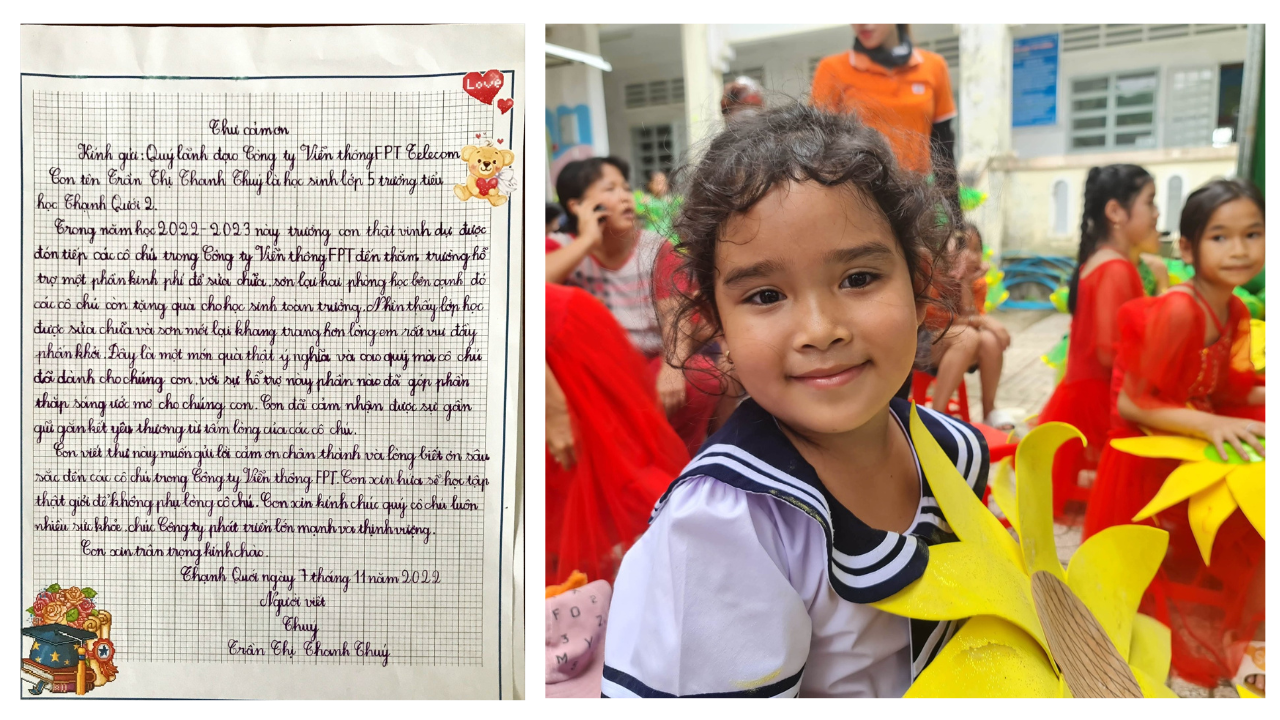 Love
Thư cảm ơn
Kính gửi: Quý lãnh đạo Công ty Viễn thông FPT Telecom
Con tên Trần Thị Thanh Thuý là học sinh lớp 5 trường tiểu
học Thạnh Qưới 2.
Trong năm học 2022-2023 này trường con thật vinh dự được
đón tiếp các cô chú trong Công ty Viễn thông FPT đến thăm trường hỗ
trợ một phần kinh phí để sửa chữa, sơn lại hai phòng học bên cạnh đó
các cô chú còn tặng quà cho học sinh toàn trường. Nhìn thấy lớp học
được sửa chữa và sơn mới lại khang trang hơn lòng em rất vui đầy
phấn khởi. Đây là một món quà thật ý nghĩa và cao quý mà cô chú
đã dành cho chúng con, với sự hỗ trợ này phần nào đã góp phần
thắp sáng ước mơ cho chúng con. Con đã cảm nhận được sự gần
gũi gắn kết yêu thương từ tấm lòng của các cô chú.
Con viết thư này muốn gửi lời cảm ơn chân thành và lòng biết ơn sâu
sắc đến các cô chú trong Công ty Viễn thông FPT. Con xin hứa sẽ học tập
thật giỏi để không phụ lòng cô chú. Con xin kính chúc quý cô chú luôn
nhiều sức khỏe, chúc Công ty phát triển lớn mạnh và thịnh vượng.
Con xin trân trọng kính chào.
Thạnh Qưới ngày 7 tháng 11 năm 2022
Người viết
Thuý
Trần Thị Thanh Thuý